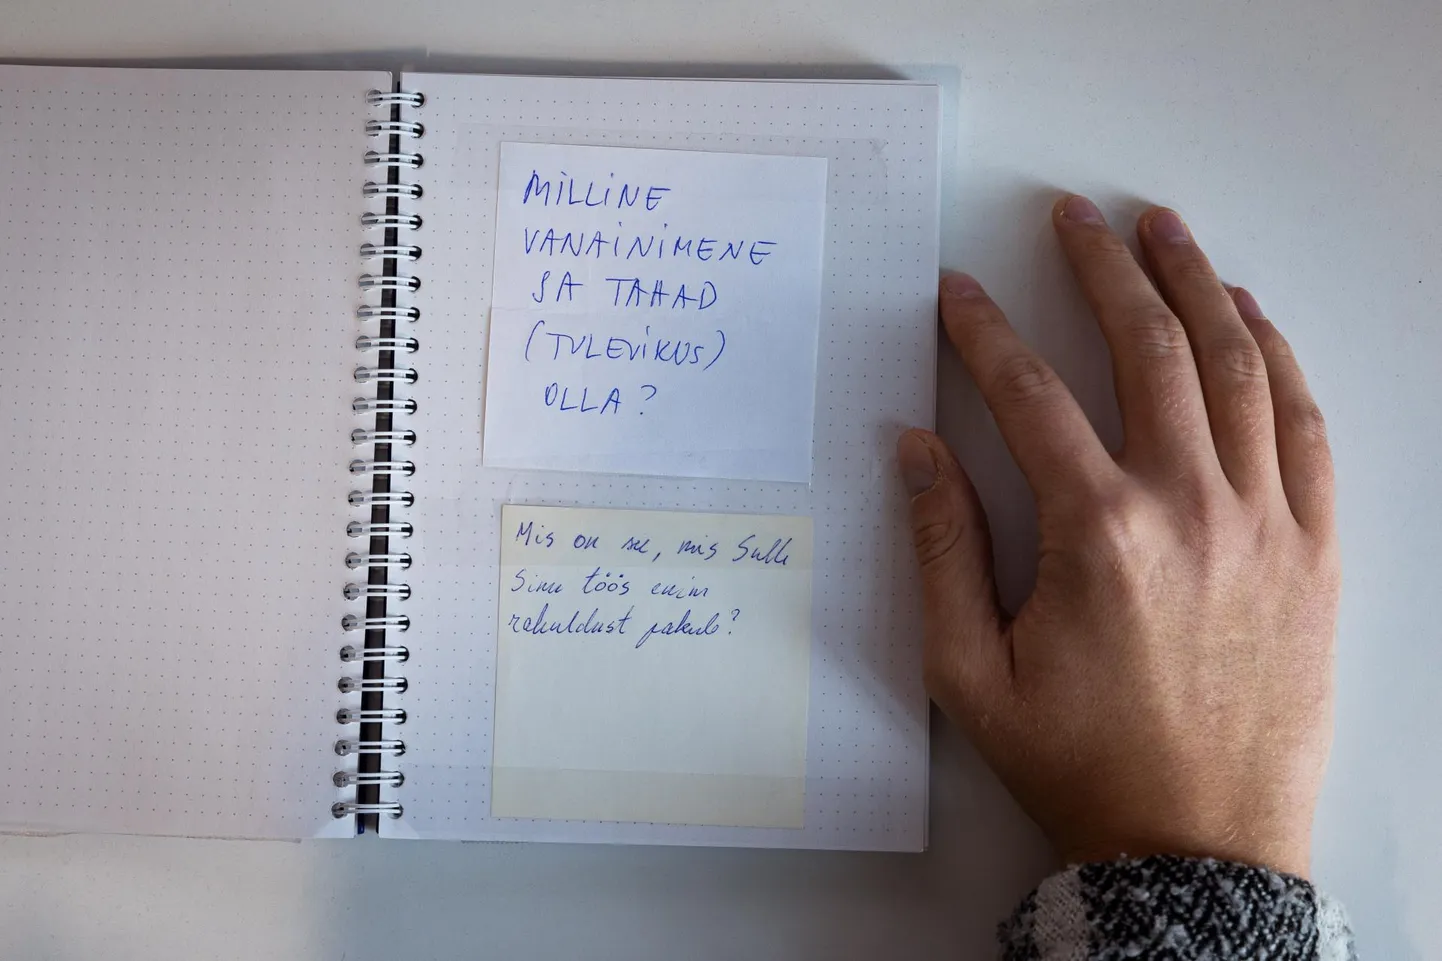 MILLINE
VANAINIMENE
SA TAHAD
(TULEVIKUS)
OLLA?
Mis on see, mis Sulle
Sinu töös enim
rahuldust pakub?